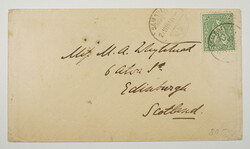 Miss M. A. Whytehead
6 Alva St
Edinburgh
Scotland.